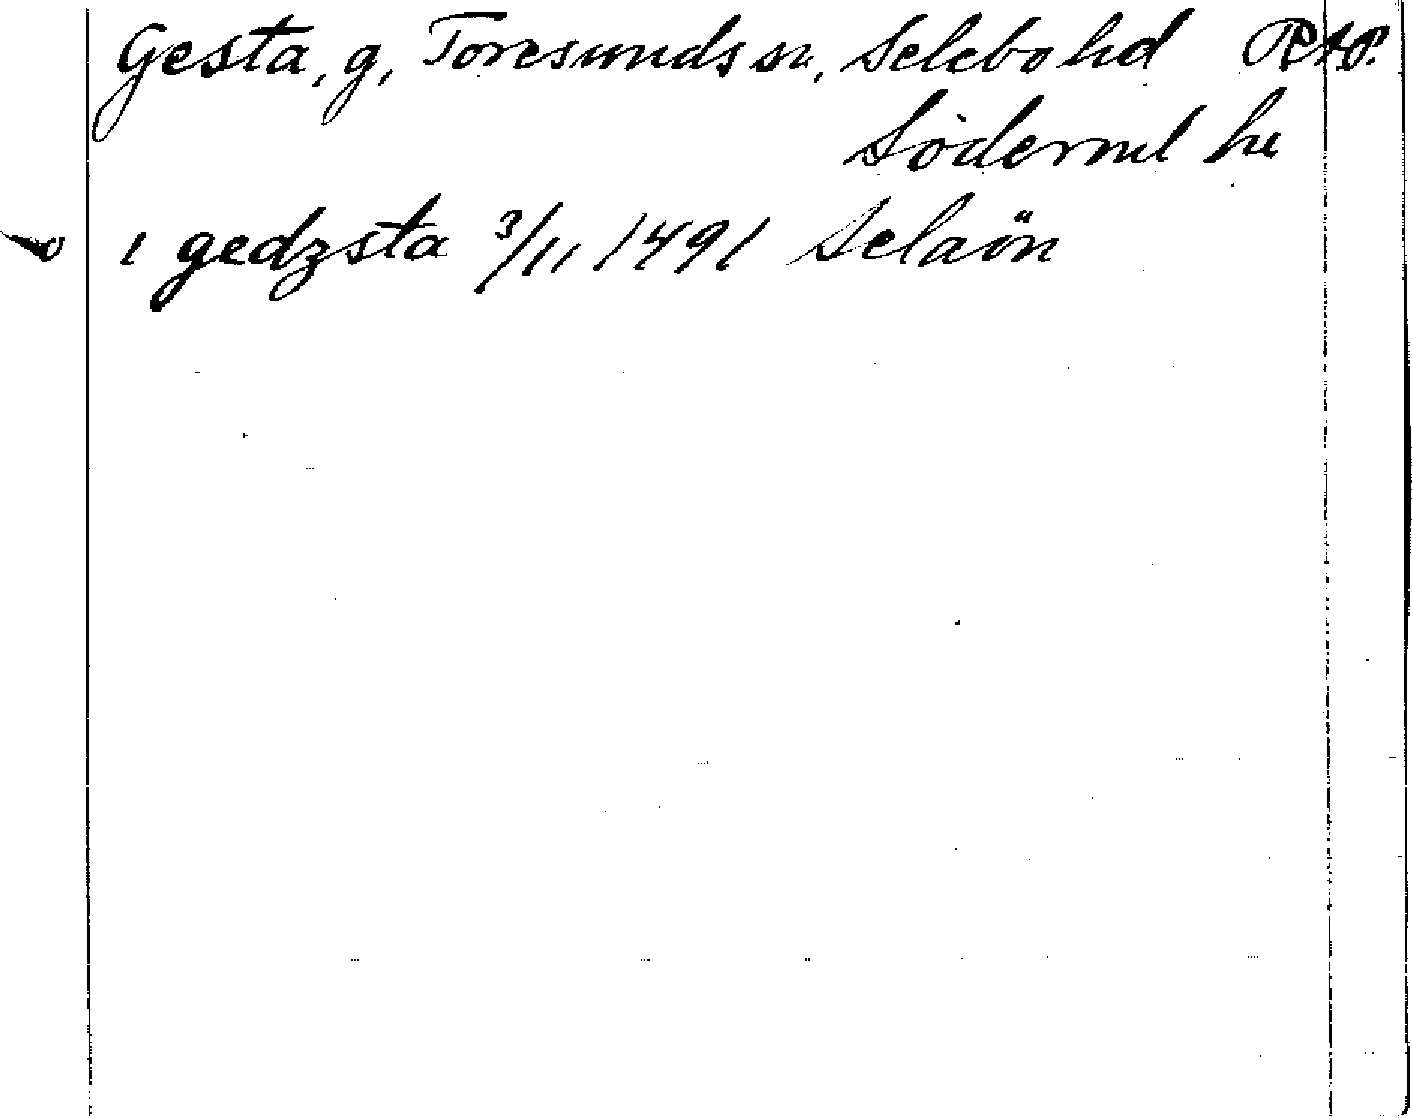 Gesta, g, Toresunds sn, Selebo hd RAP.
Söderml hu
i gedzsta 3/11 1491 Selaön